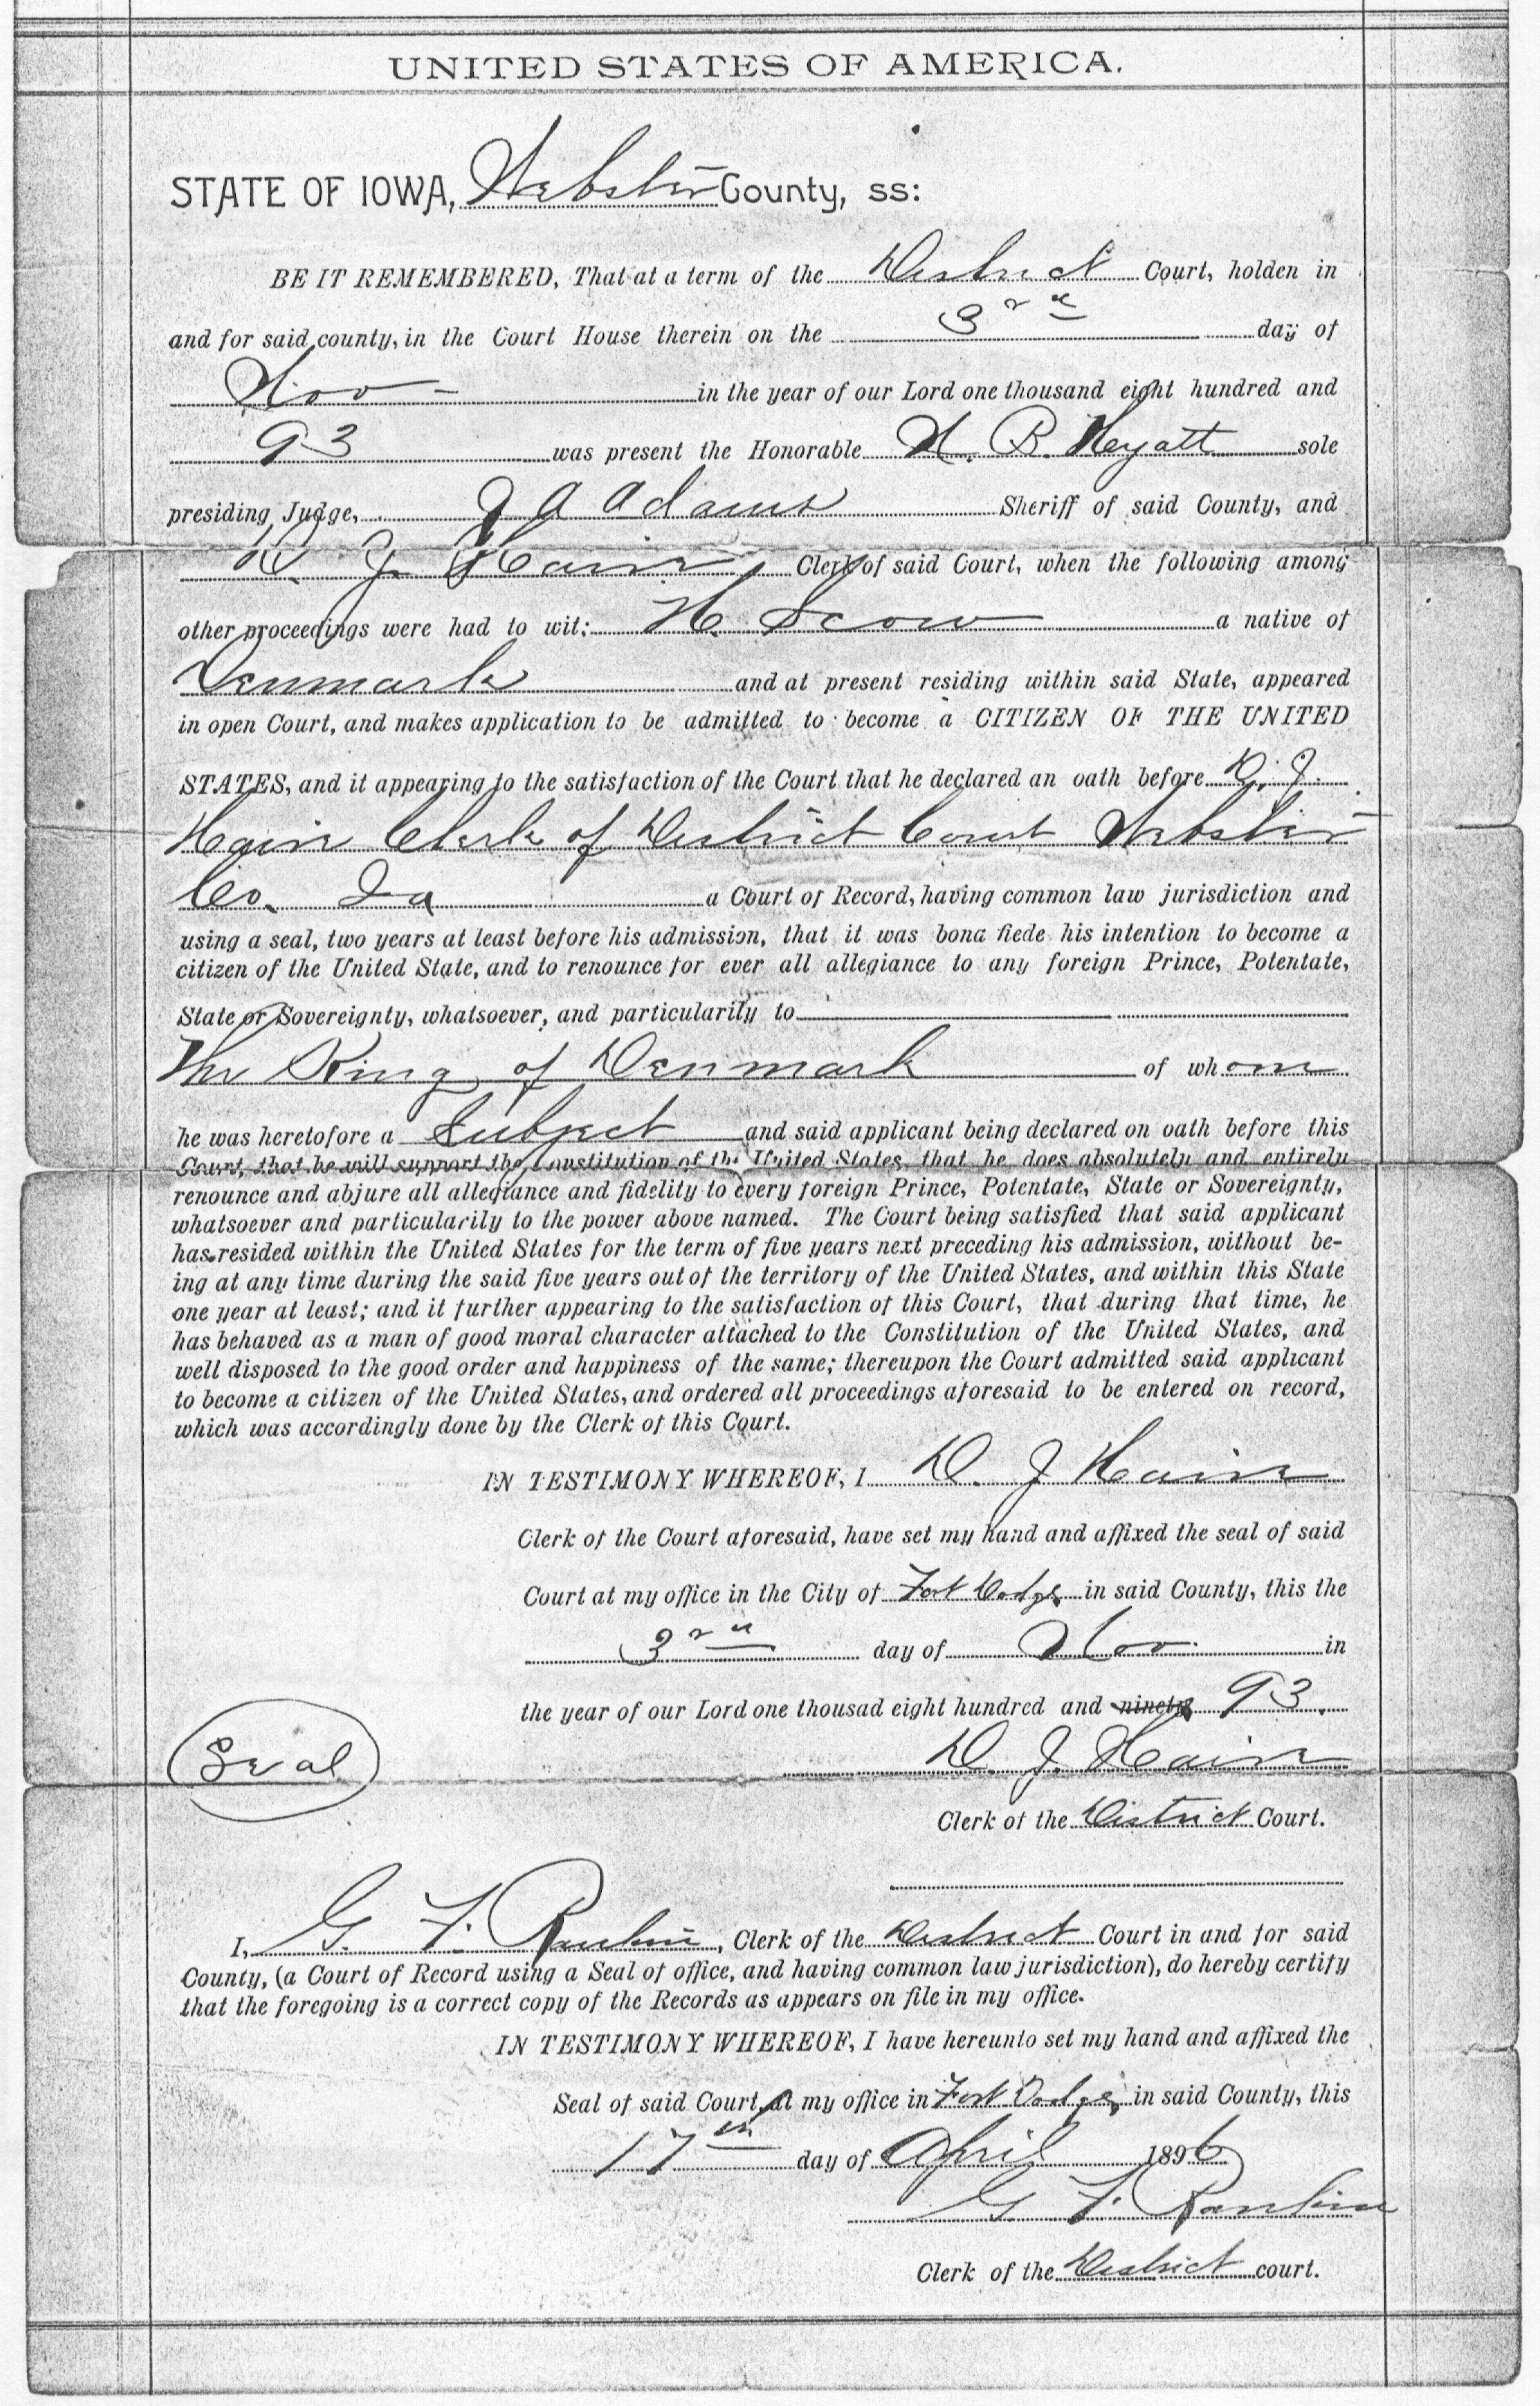 UNITED STATES OF AMERICA.
STATE OF IOWA, Webster County, ss:
BE IT REMEMBERED, That at a term of the District Court, holden in
and for said county, in the Court House therein on the 3rd day of
Nov in the year of our Lord one thousand eight hundred and
93 was present the Honorable N. B. Hyatt sole
presiding Judge, J A Adams Sheriff of said County, and
D. J. Haire Clerk of said Court, when the following among
other proceedings were had to wit: H. Scow a native of
Denmark and at present residing within said State, appeared
in open Court, and makes application to be admitted to become a CITIZEN OF THE UNITED
STATES, and it appearing to the satisfaction of the Court that he declared an oath before D. J.
Haire Clerk of District Court Webster
Co. Ia a Court of Record, having common law jurisdiction and
using a seal, two years at least before his admission, that it was bona fiede his intention to become a
citizen of the United State, and to renounce for ever all allegiance to any foreign Prince, Potentate,
State or Sovereignty, whatsoever, and particularily to
The King of Denmark of whome
he was heretofore a Subject and said applicant being declared on oath before this
Court, that he will support the Constitution of the United States, that he does absolutely and entirely
renounce and abjure all allegiance and fidelity to every foreign Prince, Potentate, State or Sovereignty,
whatsoever and particularily to the power above named. The Court being satisfied that said applicant
has resided within the United States for the term of five years next preceding his admission, without be-
ing at any time during the said five years out of the territory of the United States, and within this State
one year at least; and it further appearing to the satisfaction of this Court, that during that time, he
has behaved as a man of good moral character attached to the Constitution of the United States, and
well disposed to the good order and happiness of the same; thereupon the Court admitted said applicant
to become a citizen of the United States, and ordered all proceedings aforesaid to be entered on record,
which was accordingly done by the Clerk of this Court.
IN TESTIMONY WHEREOF, I D. J Haire
Clerk of the Court aforesaid, have set my hand and affixed the seal of said
Court at my office in the City of Fort Dodge in said County, this the
3rd day of Nov in
the year of our Lord one thousad eight hundred and ninety 93.
Seal
D. J. Haire
Clerk of the District Court.
I, G. F. Rankin, Clerk of the District Court in and for said
County, (a Court of Record using a Seal of office, and having common law jurisdiction), do hereby certify
that the foregoing is a correct copy of the Records as appears on file in my office.
IN TESTIMONY WHEREOF, I have hereunto set my hand and affixed the
Seal of said Court, at my office in Fort Dodge, in said County, this
17th day of April 1896
G F. Rankin
Clerk of the District court.